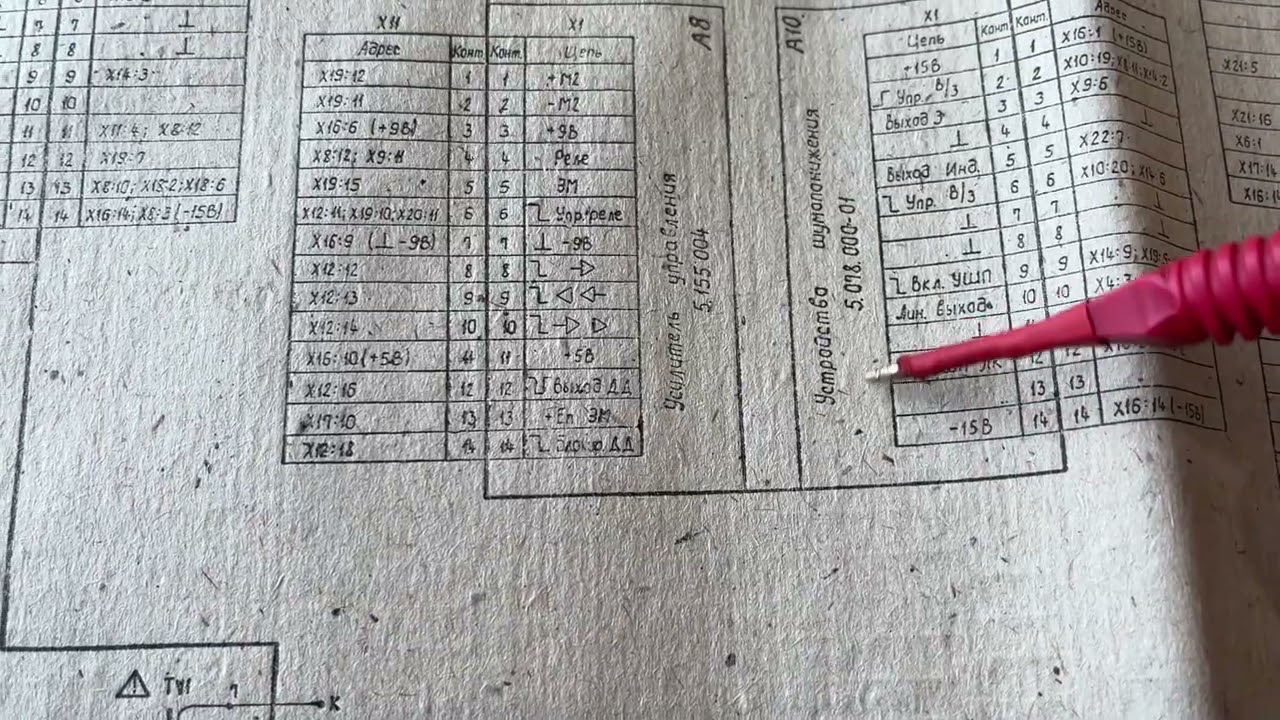 7 7 ⊥
8 8 ⊥
9 9 X14:3
10 10
11 11 X11:4; X8:12
12 12 X19:7
13 13 X8:10; X15:2; X18:6
14 14 X16:14; X8:3 (-15В)
X11 X1
Адрес Конт. Конт. Цепь
X19:12 1 1 +М2
X19:11 2 2 -М2
X16:6 (+9В) 3 3 +9В
X8:12; X9:11 4 4 Реле
X19:15 5 5 ЭМ
X12:11; X19:10; X20:11 6 6 Упр. реле
X16:9 (⊥ -9В) 7 7 ⊥ -9В
X12:12 8 8
X12:13 9 9
X12:14 10 10
X16:10 (+5В) 11 11 +5В
X12:16 12 12 Выход ДД
X17:10 13 13 +Еп ЭМ
X12:18 14 14 ДД
А8
Усилитель управления
5.155.004
А10
Устройства шумопонижения
5.078.000-01
X1
Цепь Конт. Конт. Адрес
+15В 1 1 X16:1 (+15В)
Упр. В/З 2 2 X10:19;
Выход З 3 3 X9:6
⊥ 4 4 ⊥
Выход Инд. 5 5 X22:7
Упр. В/З 6 6 X10:20; X14:6
⊥ 7 7 ⊥
⊥ 8 8 ⊥
Вкл. УШП 9 9 X14:9;
Лин. выход 10 10
⊥
12 12
13 13 -
-15В 14 14 X16:14 (-15В)
X21:5
X21:16
X6:1
X17:14
⚠ TV1
1 К